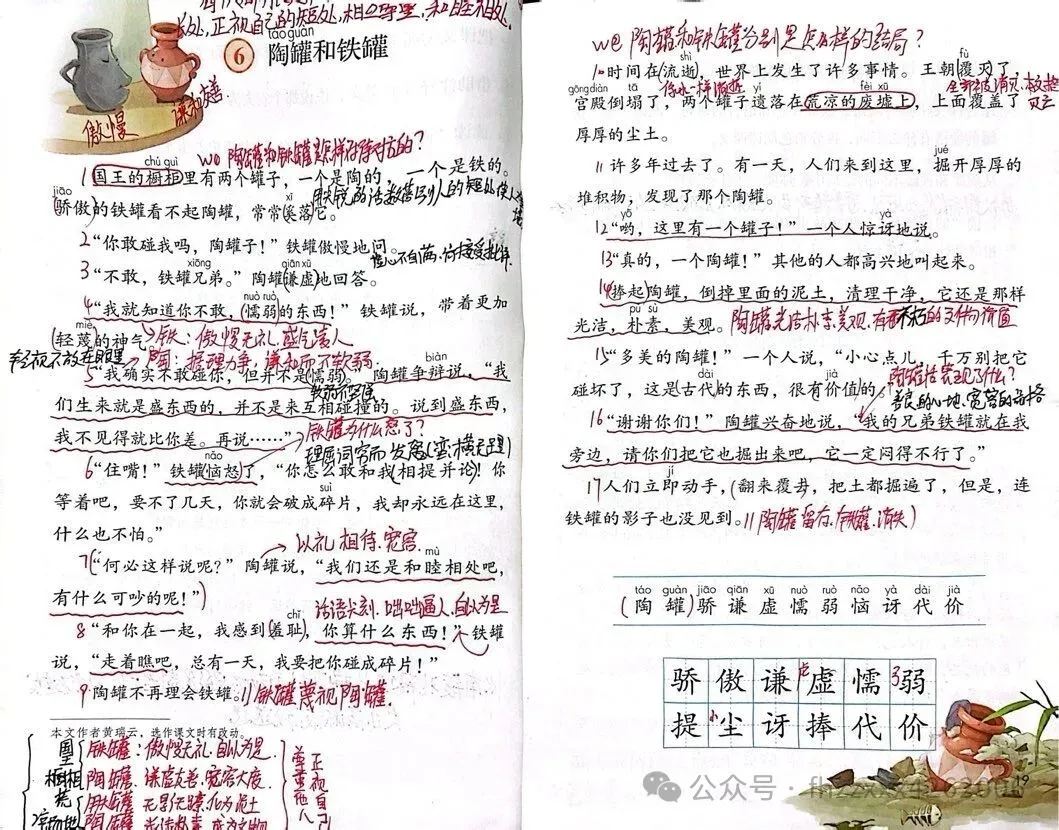 长处,正视自己的短处,相互尊重,和睦相处。
táo guàn
6 陶罐和铁罐
傲慢
谦和友善
chú guì
1国王的橱柜里有两个罐子,一个是陶的,一个是铁的。
jiāo
xī
骄傲的铁罐看不起陶罐,常常奚落它。
2“你敢碰我吗,陶罐子!”铁罐傲慢地问。
xiōng
qiān xū
3“不敢,铁罐兄弟。”陶罐谦虚地回答。
nuò ruò
4“我就知道你不敢,(懦弱)的东西!”铁罐说,带着更加
miè
(轻蔑)的神气。
铁:傲慢无礼 盛气凌人
陶:据理力争,谦和而不软弱
biàn
5“我确实不敢碰你,但并不是(懦弱)。”陶罐争辩说,“我
们生来就是盛东西的,并不是来互相碰撞的。说到盛东西,
我不见得就比你差。再说……”
铁罐为什么怒了?
nǎo
6“住嘴!”铁罐(恼怒)了,“你怎么敢和我相提并论!你
suì
等着吧,要不了几天,你就会破成碎片,我却永远在这里,
什么也不怕。”
以礼相待.宽容
mù
7(“何必这样说呢?”陶罐说,“我们还是和睦相处吧,
有什么可吵的呢!”)
话语尖刻.咄咄逼人.自以为是
chǐ
8“和你在一起,我感到(羞耻),你算什么东西!”铁罐
说,“走着瞧吧,总有一天,我要把你碰成碎片!”
9陶罐不再理会铁罐。//铁罐蔑视陶罐.
本文作者黄瑞云,选作课文时有改动。
国王橱柜
铁罐:傲慢无礼.自以为是
陶罐.谦虚友善.宽容大度
荒凉场地
铁罐 无影无踪.化为泥土
陶罐 光洁朴素.成为文物
we 陶罐和铁罐分别是怎样的结局?
shì
fù
10时间在(流逝),世界上发生了许多事情。王朝(覆灭)了,
gōng diàn tā
yí
fèi xū
宫殿倒塌了,两个罐子遗落在荒凉的废墟上,上面覆盖了
厚厚的尘土。
jué
11许多年过去了。有一天,人们来到这里,掘开厚厚的
堆积物,发现了那个陶罐。
yō
yà
12“哟,这里有一个罐子!”一个人惊讶地说。
13“真的,一个陶罐!”其他的人都高兴地叫起来。
14(捧起)陶罐,倒掉里面的泥土,清理干净,它还是那样
pǔ sù
光洁,朴素,美观。
陶罐光洁朴素.美观.有着不朽的文物价值
15“多美的陶罐!”一个人说,“小心点儿,千万别把它
dài
jià
碰坏了,这是(古代)的东西,很有价值的。”
16“谢谢你们!”陶罐兴奋地说,“我的兄弟铁罐就在我
旁边,请你们把它也掘出来吧,它一定闷得不行了。”
jí
17人们立即动手,(翻来覆去),把土都掘遍了,但是,连
铁罐的影子也没见到。//(陶罐留存.铁罐.消失)
táo guàn jiāo qiān xū nuò ruò nǎo yà dài jià
(陶罐)骄谦虚懦弱恼讶代价
骄傲谦虚懦弱
提尘讶捧代价
公众号
19